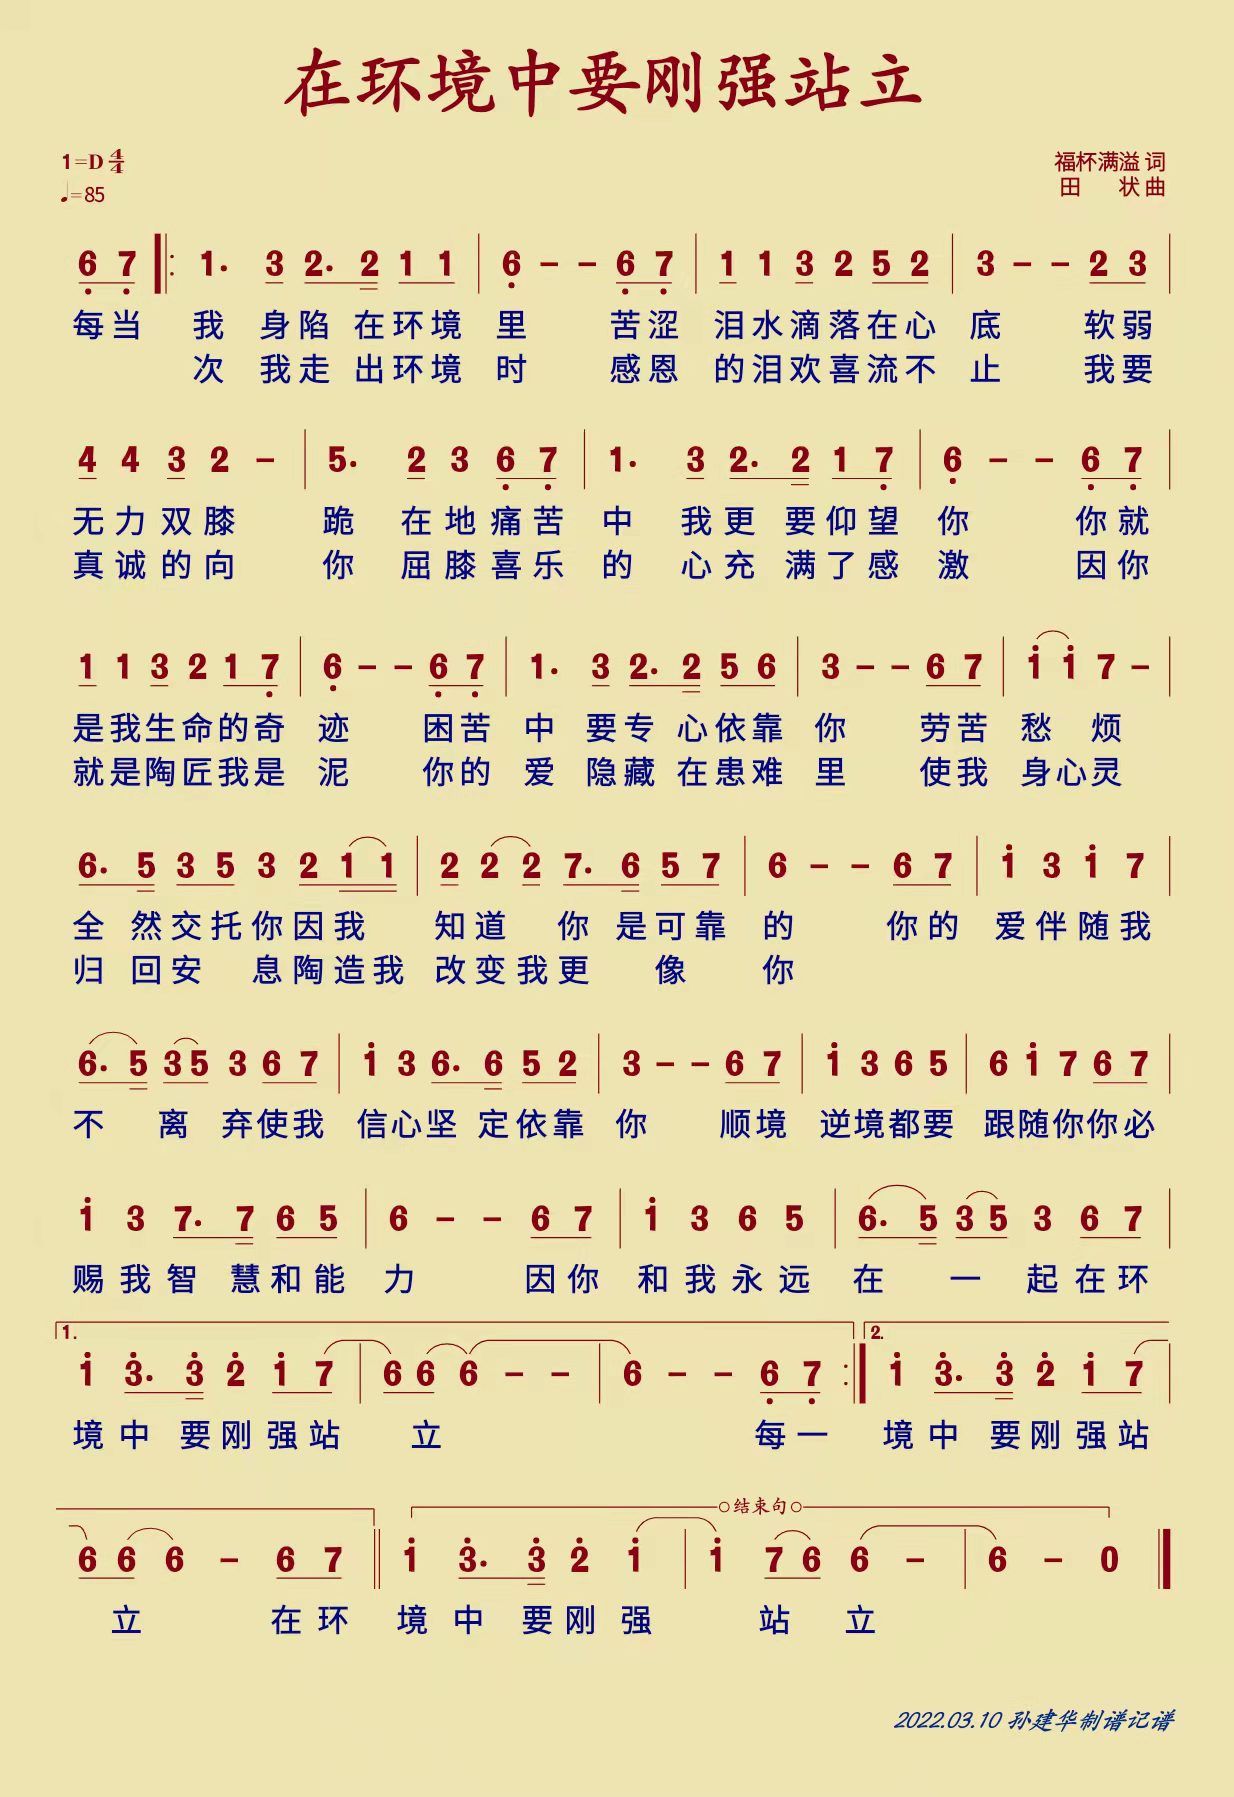 在环境中要刚强站立
1=D 4/4
♩=85
福杯满溢 词
田 状 曲
6 7 ‖: 1. 3 2. 2 1 1 | 6 - - 6 7 | 1 1 3 2 5 2 | 3 - - 2 3 |
每当 我 身陷 在环境 里 苦涩 泪水滴落在心 底 软弱
次 我走 出环境 时 感恩 的泪欢喜流不 止 我要
4 4 3 2 - | 5. 2 3 6 7 | 1. 3 2. 2 1 7 | 6 - - 6 7 |
无力双膝 跪 在地痛苦 中 我更 要仰望 你 你就
真诚的向 你 屈膝喜乐 的 心充 满了感 激 因你
1 1 3 2 1 7 | 6 - - 6 7 | 1. 3 2. 2 5 6 | 3 - - 6 7 | i i 7 - |
是我生命的奇 迹 困苦 中 要专 心依靠 你 劳苦 愁 烦
就是陶匠我是 泥 你的 爱 隐藏 在患难 里 使我 身心灵
6. 5 3 5 3 2 1 1 | 2 2 2 7. 6 5 7 | 6 - - 6 7 | i 3 i 7 |
全 然交托你因我 知道 你 是可靠 的 你的 爱伴随我
归 回安 息陶造我 改变我更 像 你
6. 5 3 5 3 6 7 | i 3 6. 6 5 2 | 3 - - 6 7 | i 3 6 5 | 6 i 7 6 7 |
不 离 弃使我 信心坚 定依靠 你 顺境 逆境都要 跟随你你必
i 3 7. 7 6 5 | 6 - - 6 7 | i 3 6 5 | 6. 5 3 5 3 6 7 |
赐我智 慧和能 力 因你 和我永远 在 一 起在环
1. 2.
i 3. 3 2 i 7 | 6 6 6 - - | 6 - - 6 7 :‖ i 3. 3 2 i 7 |
境中 要刚强站 立 每一 境中 要刚强站
结束句
6 6 6 - 6 7 ‖ i 3. 3 2 i | i 7 6 6 - | 6 - 0 ‖
立 在环 境中 要刚强 站 立
2022.03.10 孙建华制谱记谱